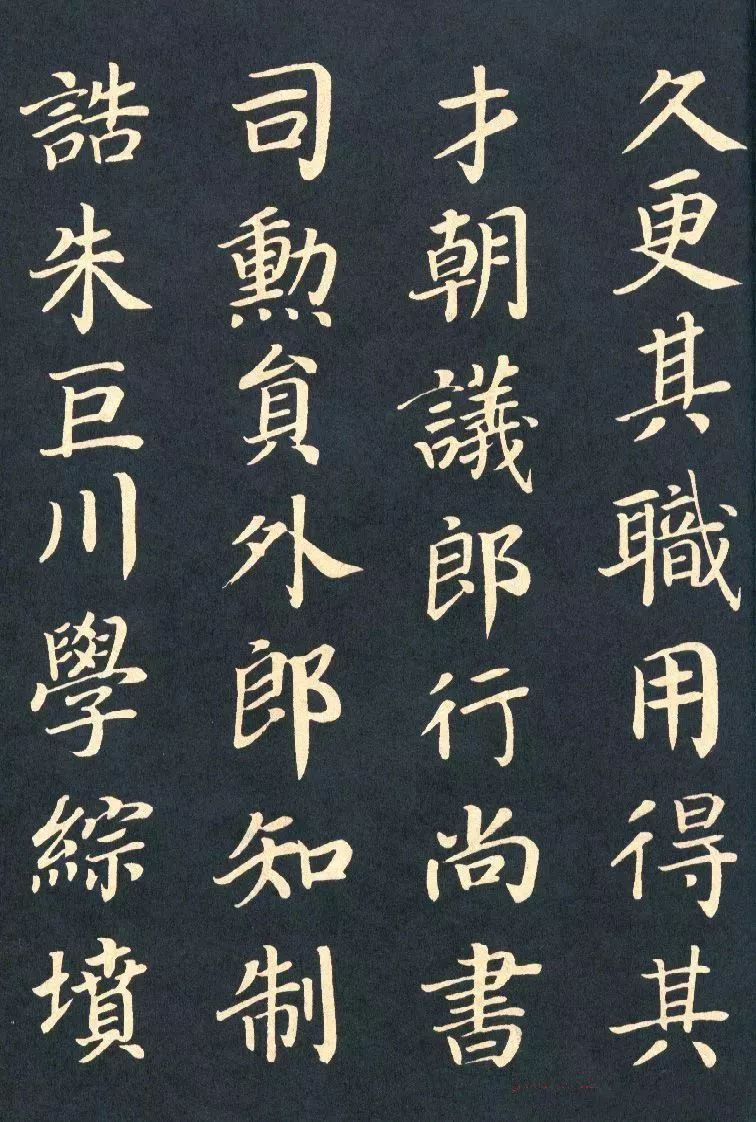 久更其職用得其
才朝議郎行尚書
司勳員外郎知制
誥朱巨川學綜墳